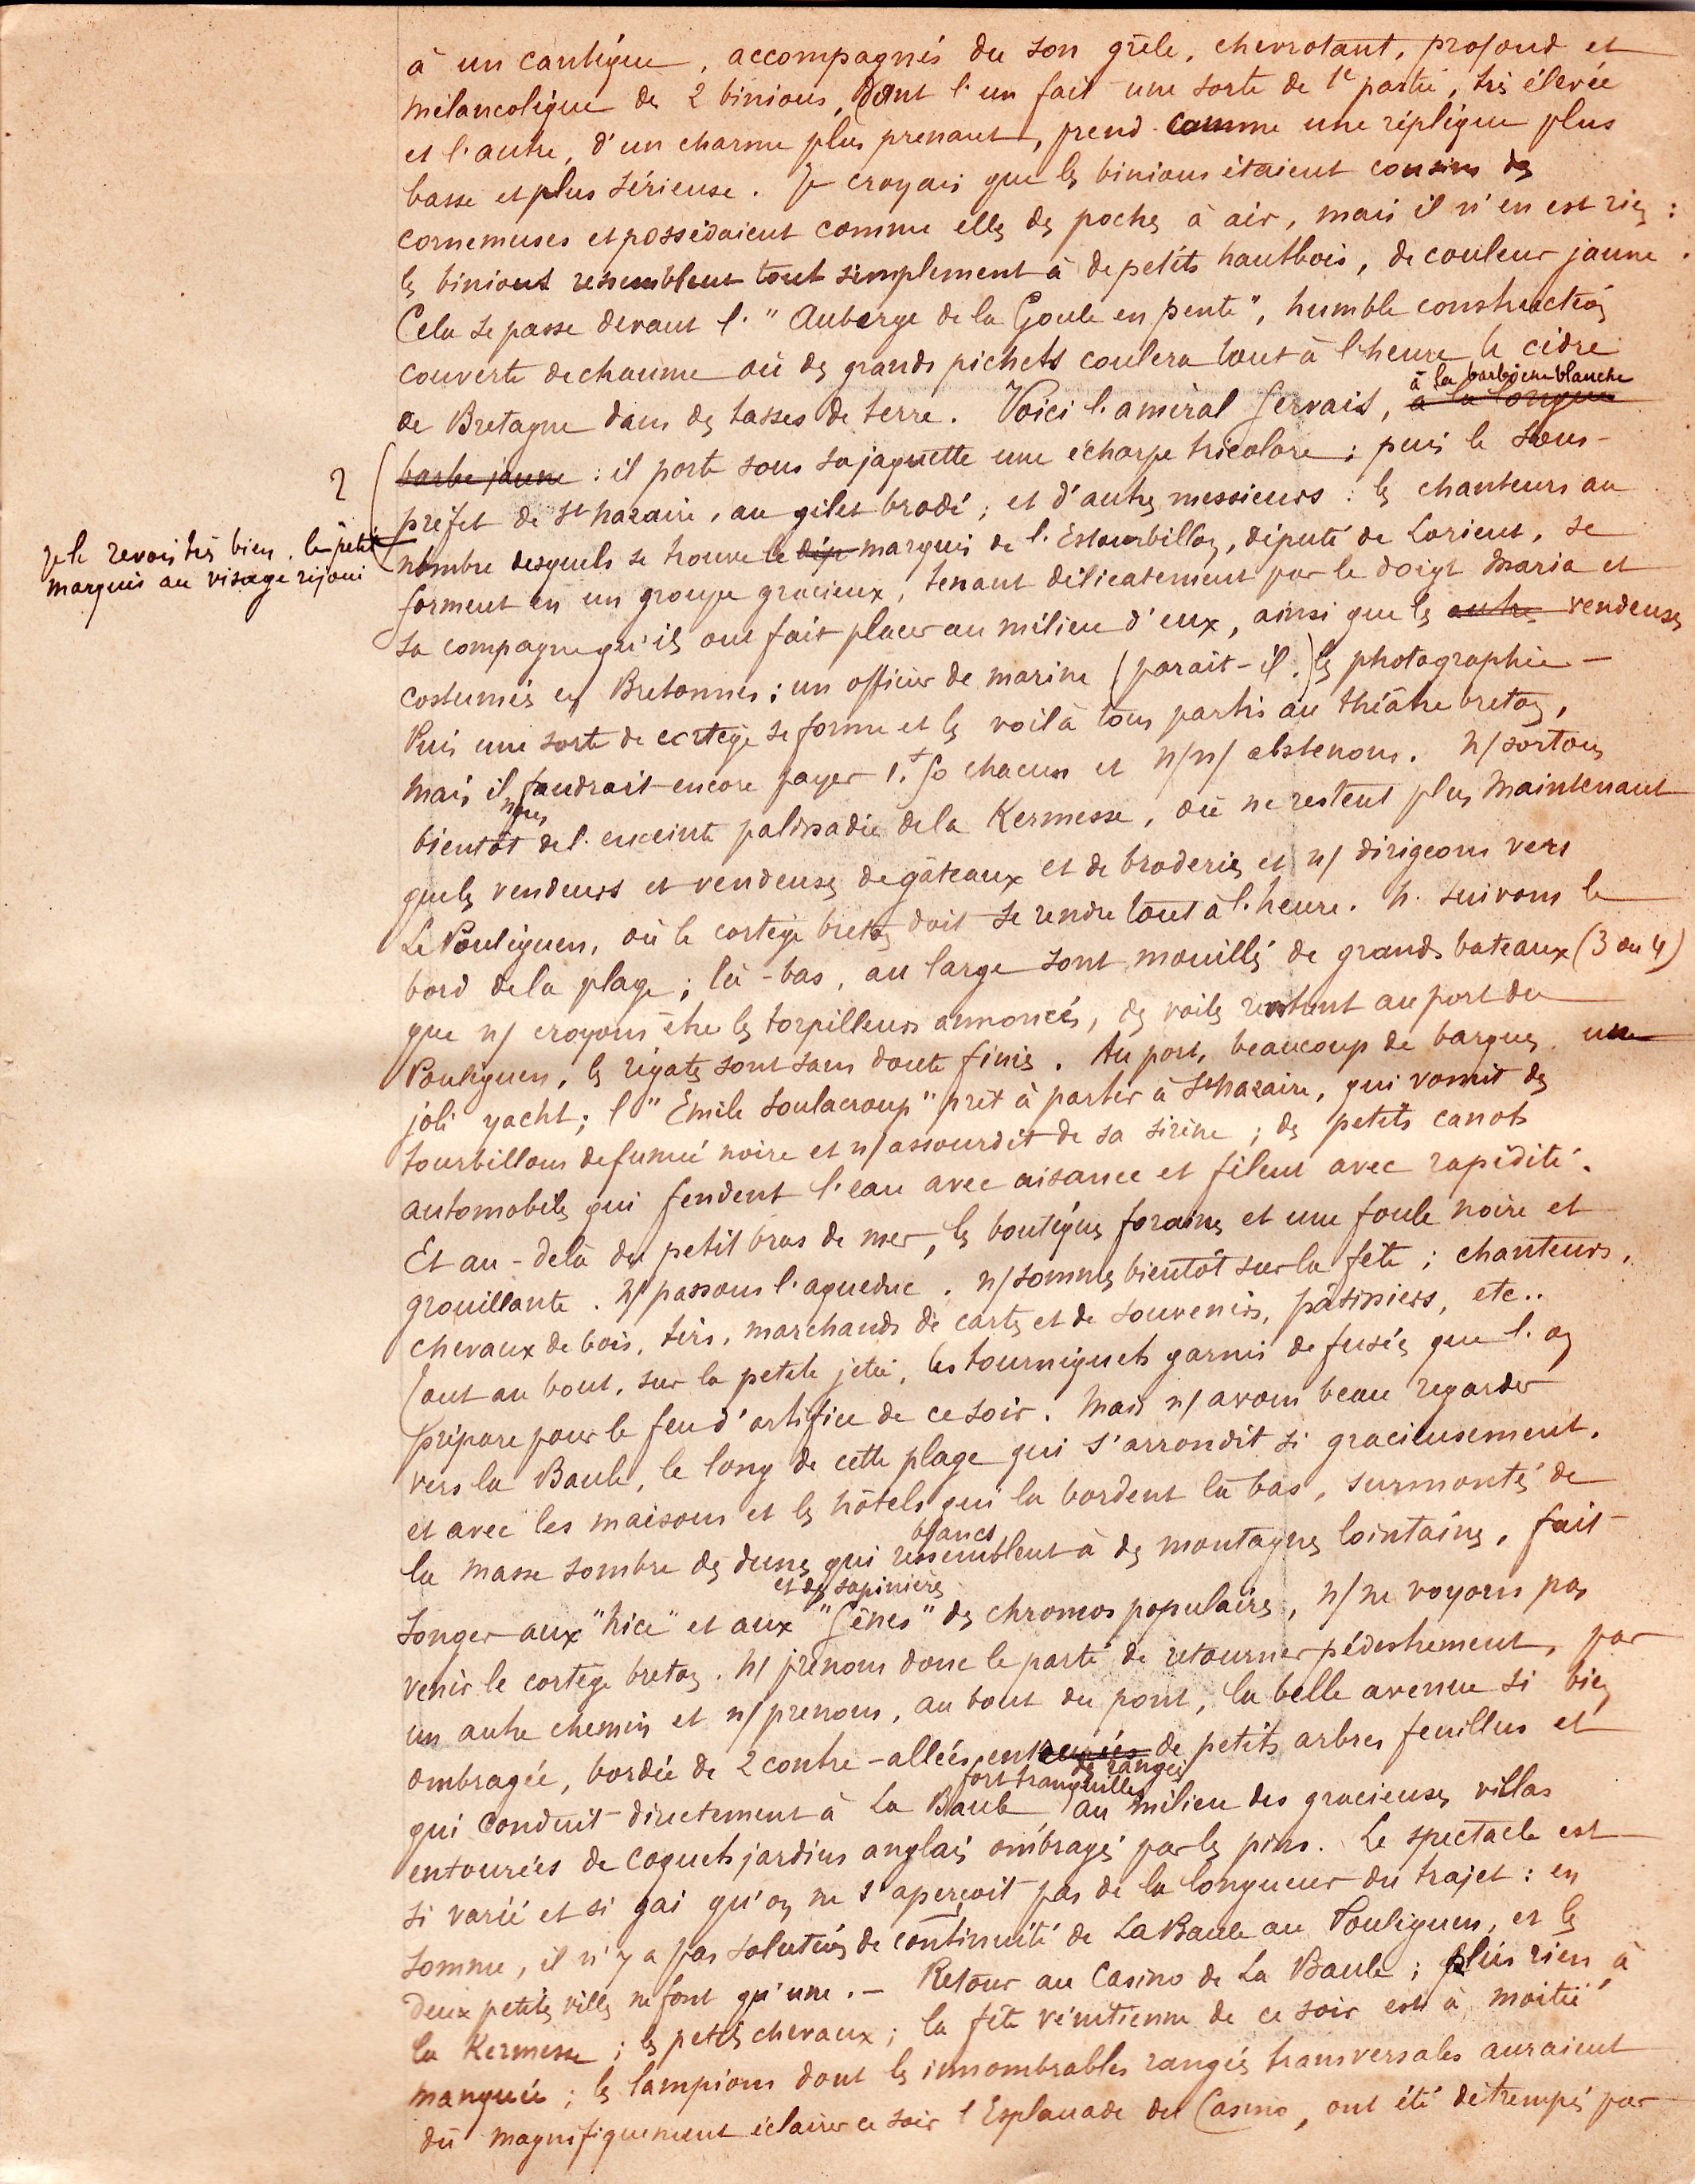 à un cantique, accompagnés du son grêle, chevrotant, profond et
mélancolique de 2 binious, dont l'un fait une sorte de 1e partie, très élevée
et l'autre, d'un charme plus prenant, prend comme une réplique plus
basse et plus sérieuse. Je croyais que les binious étaient cousins des
cornemuses et possédaient comme elles des poches à air, mais il n'en est rien :
les binious ressemblent tout simplement à de petits hautbois, de couleur jaune.
Cela se passe devant l' "Auberge de la Goule en pente", humble construction
couverte de chaume où des grands pichets coulera tout à l'heure le cidre
à la barbiche blanche
de Bretagne dans des tasses de terre. Voici l'amiral Gervais, à la longue
barbe jaune : il porte sous sa jaquette une écharpe tricolore ; puis le sous-
préfet de St Nazaire, au gilet brodé ; et d'autres messieurs : les chanteurs au
2
Je le revois très bien, le petit
marquis au visage réjoui
nombre desquels se trouve le dép marquis de l'Estourbillon, député de Lorient, se
forment en un groupe gracieux, tenant délicatement par le doigt Maria et
sa compagne qu'ils ont fait placer au milieu d'eux, ainsi que les autres vendeuses
costumées en Bretonnes ; un officier de marine (parait-il.) les photographie -
Puis une sorte de cortège se forme et les voilà tous partis au théâtre breton,
mais il faudrait encore payer 1.f 50 chacun et n/n/ abstenons. N/ sortons
nous
bientôt de l'enceinte palissadée de la Kermesse, où ne restent plus maintenant
que les vendeurs et vendeuses de gâteaux et de broderies et n/ dirigeons vers
Le Pouliguen, où le cortège breton doit se rendre tout à l'heure. N. suivons le
bord de la plage ; là-bas, au large sont mouillés de grands bateaux (3 ou 4)
que n/ croyons être les torpilleurs annoncés, des voiles rentrent au port du
Pouliguen, les régates sont sans doute finies. Au port, beaucoup de barques, un
joli yacht ; l' "Emile Soulacroup" prêt à partir à St Nazaire, qui vomit des
tourbillons de fumée noire et n/ assourdit de sa sirène ; des petits canots
automobiles qui fendent l'eau avec aisance et filent avec rapidité.
Et au-delà du petit bras de mer, les boutiques foraines et une foule noire et
grouillante. N/ passons l'aqueduc. N/ sommes bientôt sur la fête ; chanteurs,
chevaux de bois, tirs, marchands de cartes et de souvenirs, pâtissiers, etc..
Tout au bout, sur la petite jetée, les tourniquets garnis de fusées que l'on
prépare pour le feu d'artifice de ce soir. Mais n/ avons beau regarder
vers la Baule, le long de cette plage qui s'arrondit si gracieusement,
et avec les maisons et les hôtels qui la bordent là bas, surmontés de
blancs
la masse sombre des dunes qui ressemblent à des montagnes lointaines, fait
et des sapinières
songer aux "Nice" et aux "Gênes" des chromos populaires, n/ ne voyons pas
venir le cortège breton. N/ prenons donc le parti de retourner pédestrement, par
un autre chemin et n/ prenons, au bout du pont, la belle avenue si bien
ombragée, bordée de 2 contre-allées entourées de petits arbres feuillus et
de rangées
fort tranquilles
qui conduit directement à La Baule au milieu des gracieuses villas
entourées de coquets jardins anglais ombragés par les pins. Le spectacle est
si varié et si gai qu'on ne s'aperçoit pas de la longueur du trajet : en
somme, il n'y a pas solution de continuité de La Baule au Pouliguen, et les
deux petites villes ne font qu'une. - Retour au Casino de La Baule ; plus rien à
la Kermesse ; les petits chevaux ; la fête vénitienne de ce soir est à moitié
manquée ; les lampions dont les innombrables rangées transversales auraient
dû magnifiquement éclairer ce soir l'Esplanade du Casino, ont été détrempés par